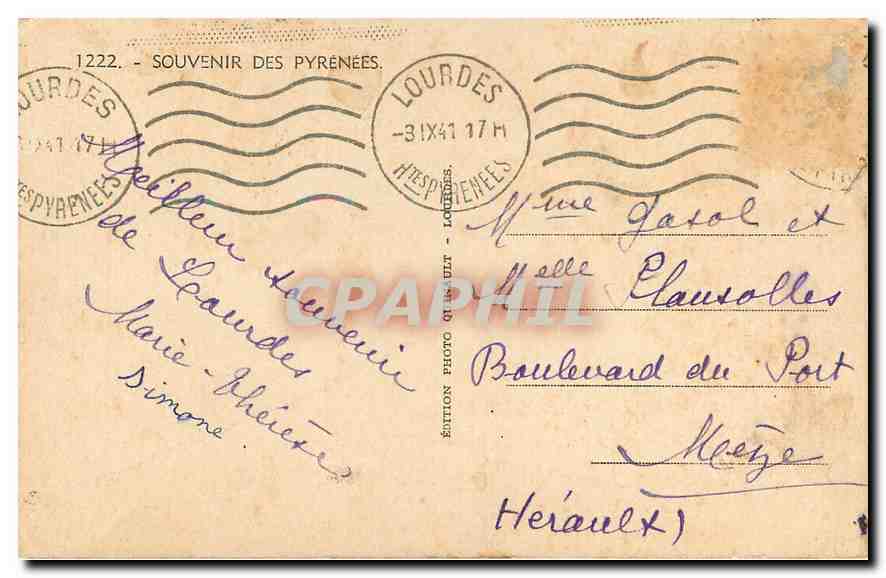 1222. - SOUVENIR DES PYRÉNÉES.
LOURDES
-3 IX41 17H
HTES PYRENEES
LOURDES
IX41 17H
TES PYRENEES
Meilleur souvenir
de Lourdes
Marie-Thérèse
Simone
ÉDITION PHOTO - LOURDES.
Mme Gasol et
Melle Clausolles
Boulevard du Port
Mèze
Hérault)
CPAPHIL